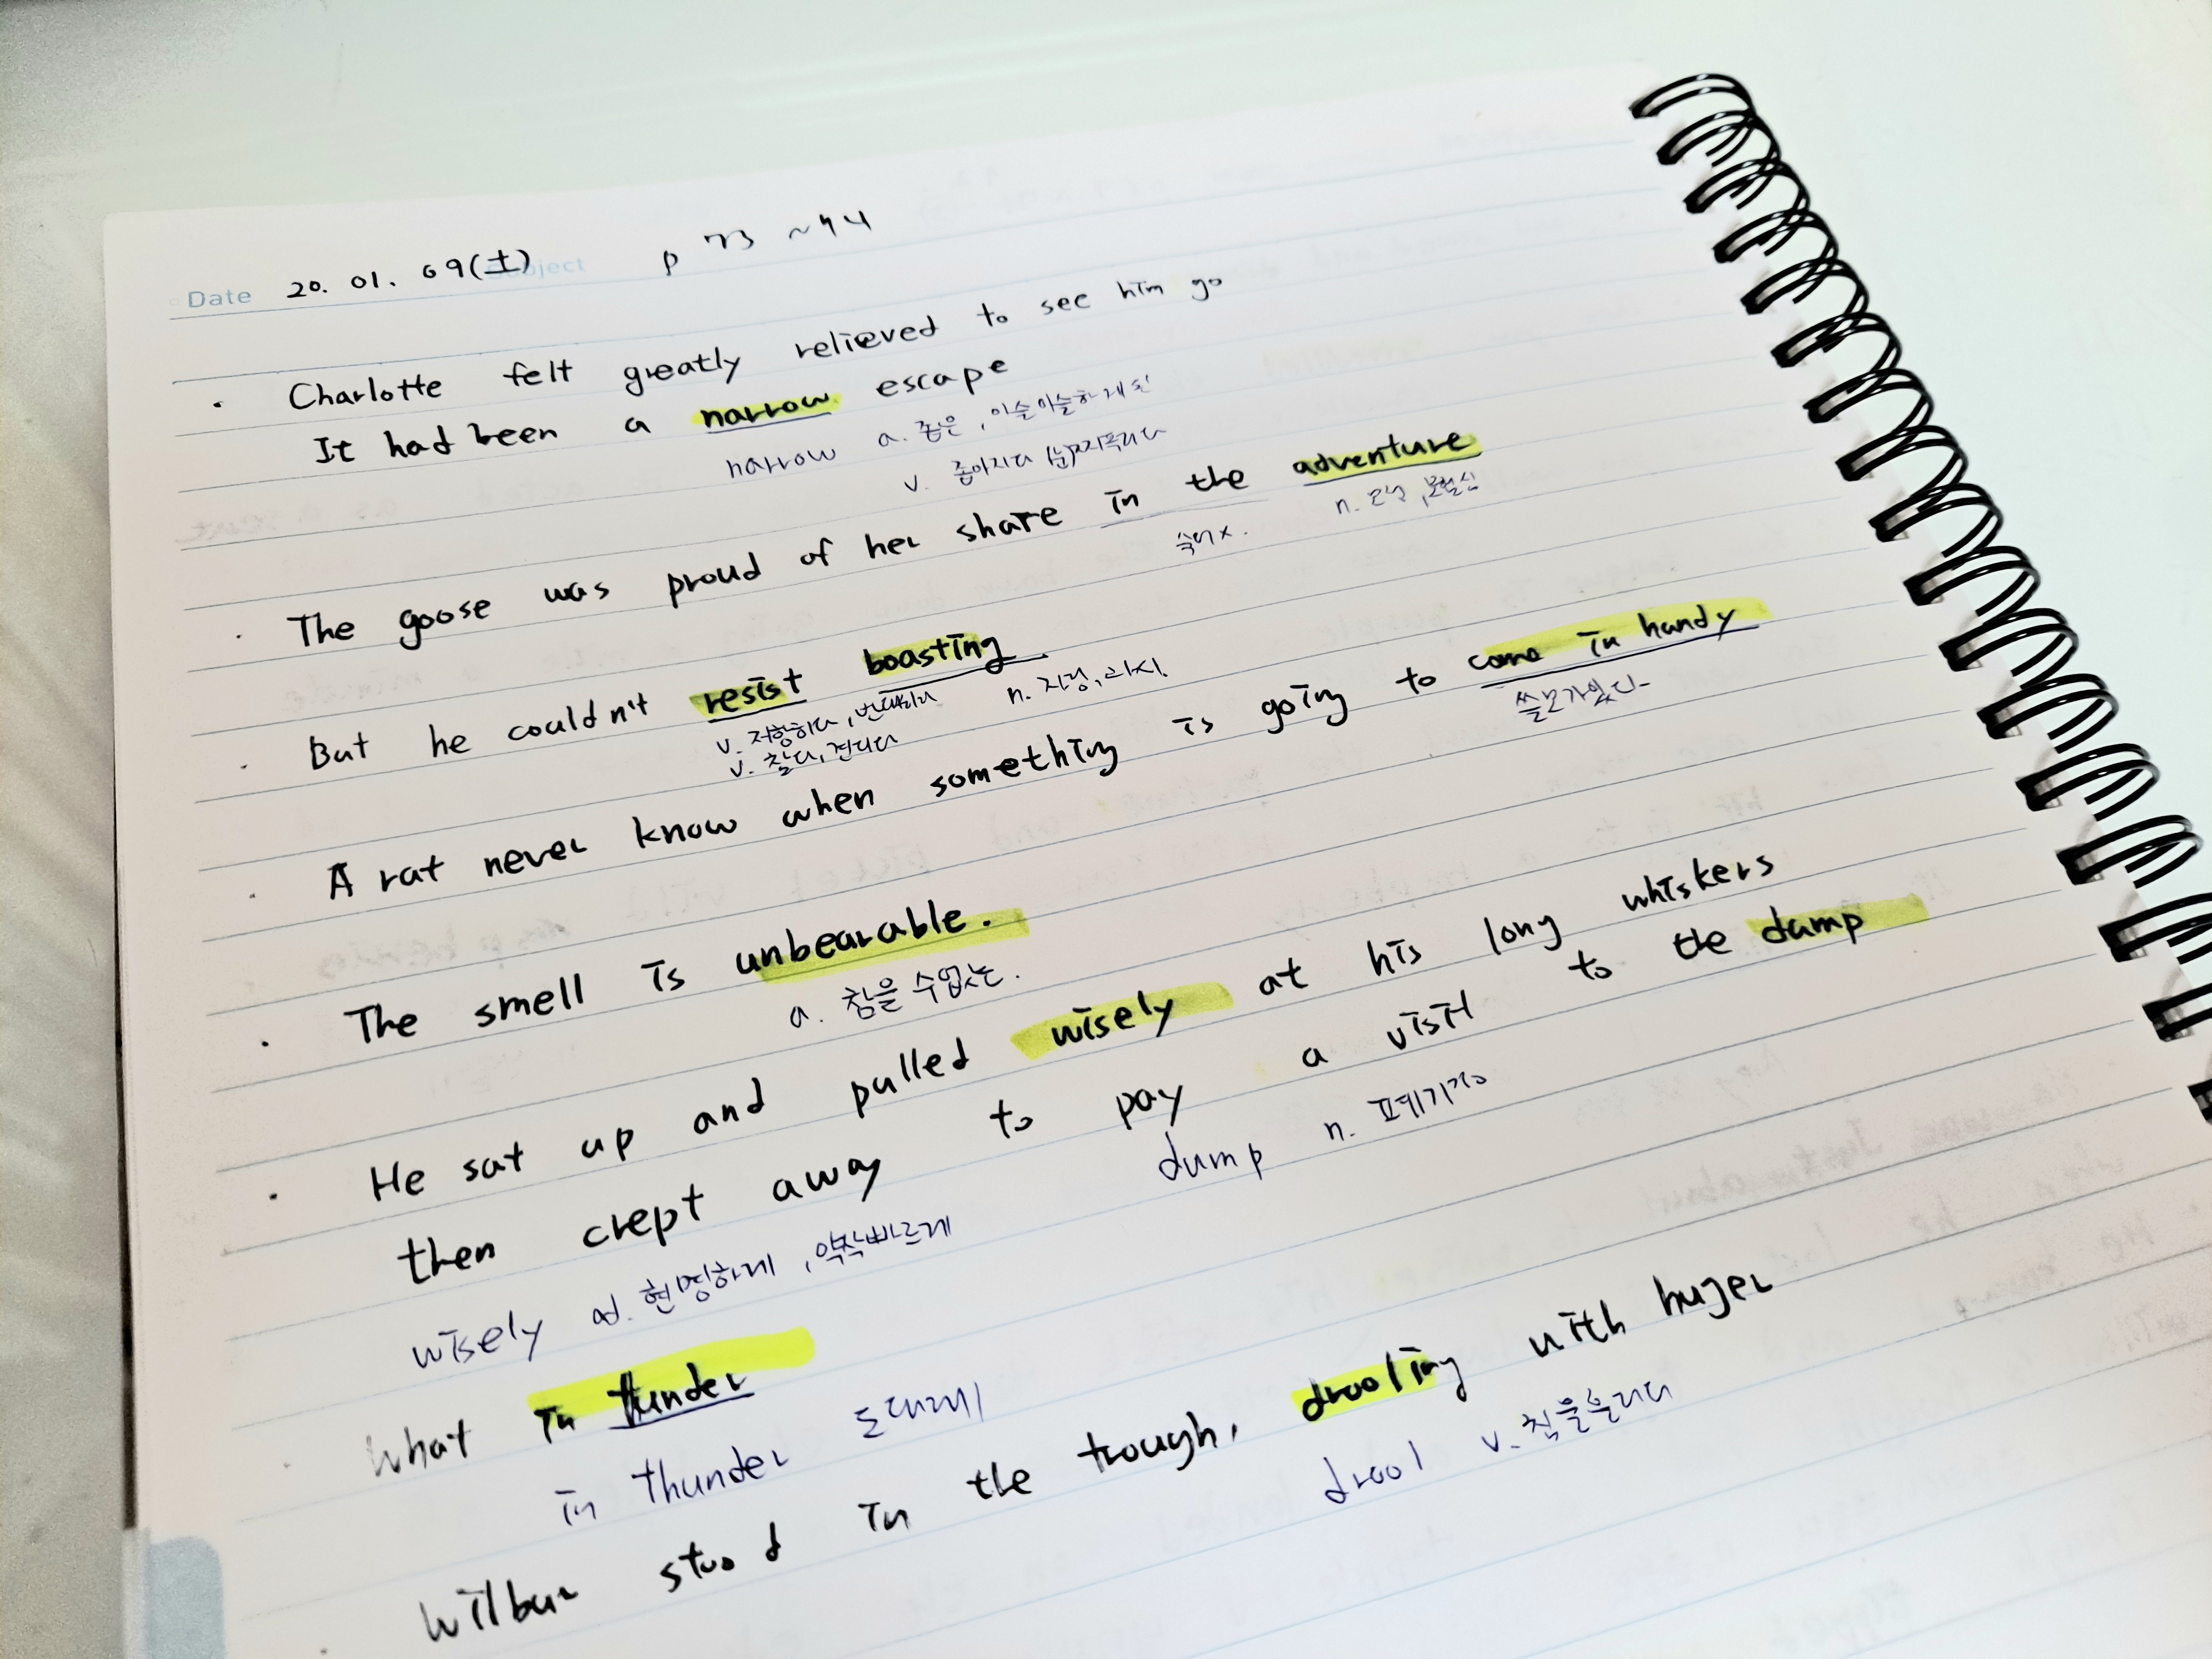 Date 20. 01. 09(土) Subject p 73 ~94
· Charlotte felt greatly relieved to see him go
It had been a narrow escape
narrow a. 좁은, 아슬아슬하게 된
v. 좁아지다 (눈)찌푸리다
· The goose was proud of her share in the adventure
숙어x. n. 모험, 모험심
· But he couldn't resist boasting.
v. 저항하다, 반대하다 n. 자랑, 과시.
v. 참다, 견디다
· A rat never know when something is going to come in handy
쓸모가있다-
· The smell is unbearable.
a. 참을 수없는.
· He sat up and pulled wisely at his long whiskers
then crept away to pay a visit to the dump
dump n. 폐기장
wisely ad. 현명하게, 약삭빠르게
· What in thunder
in thunder 도대체
· Wilbur stood in the trough, drooling with huger
drool v. 침을흘리다